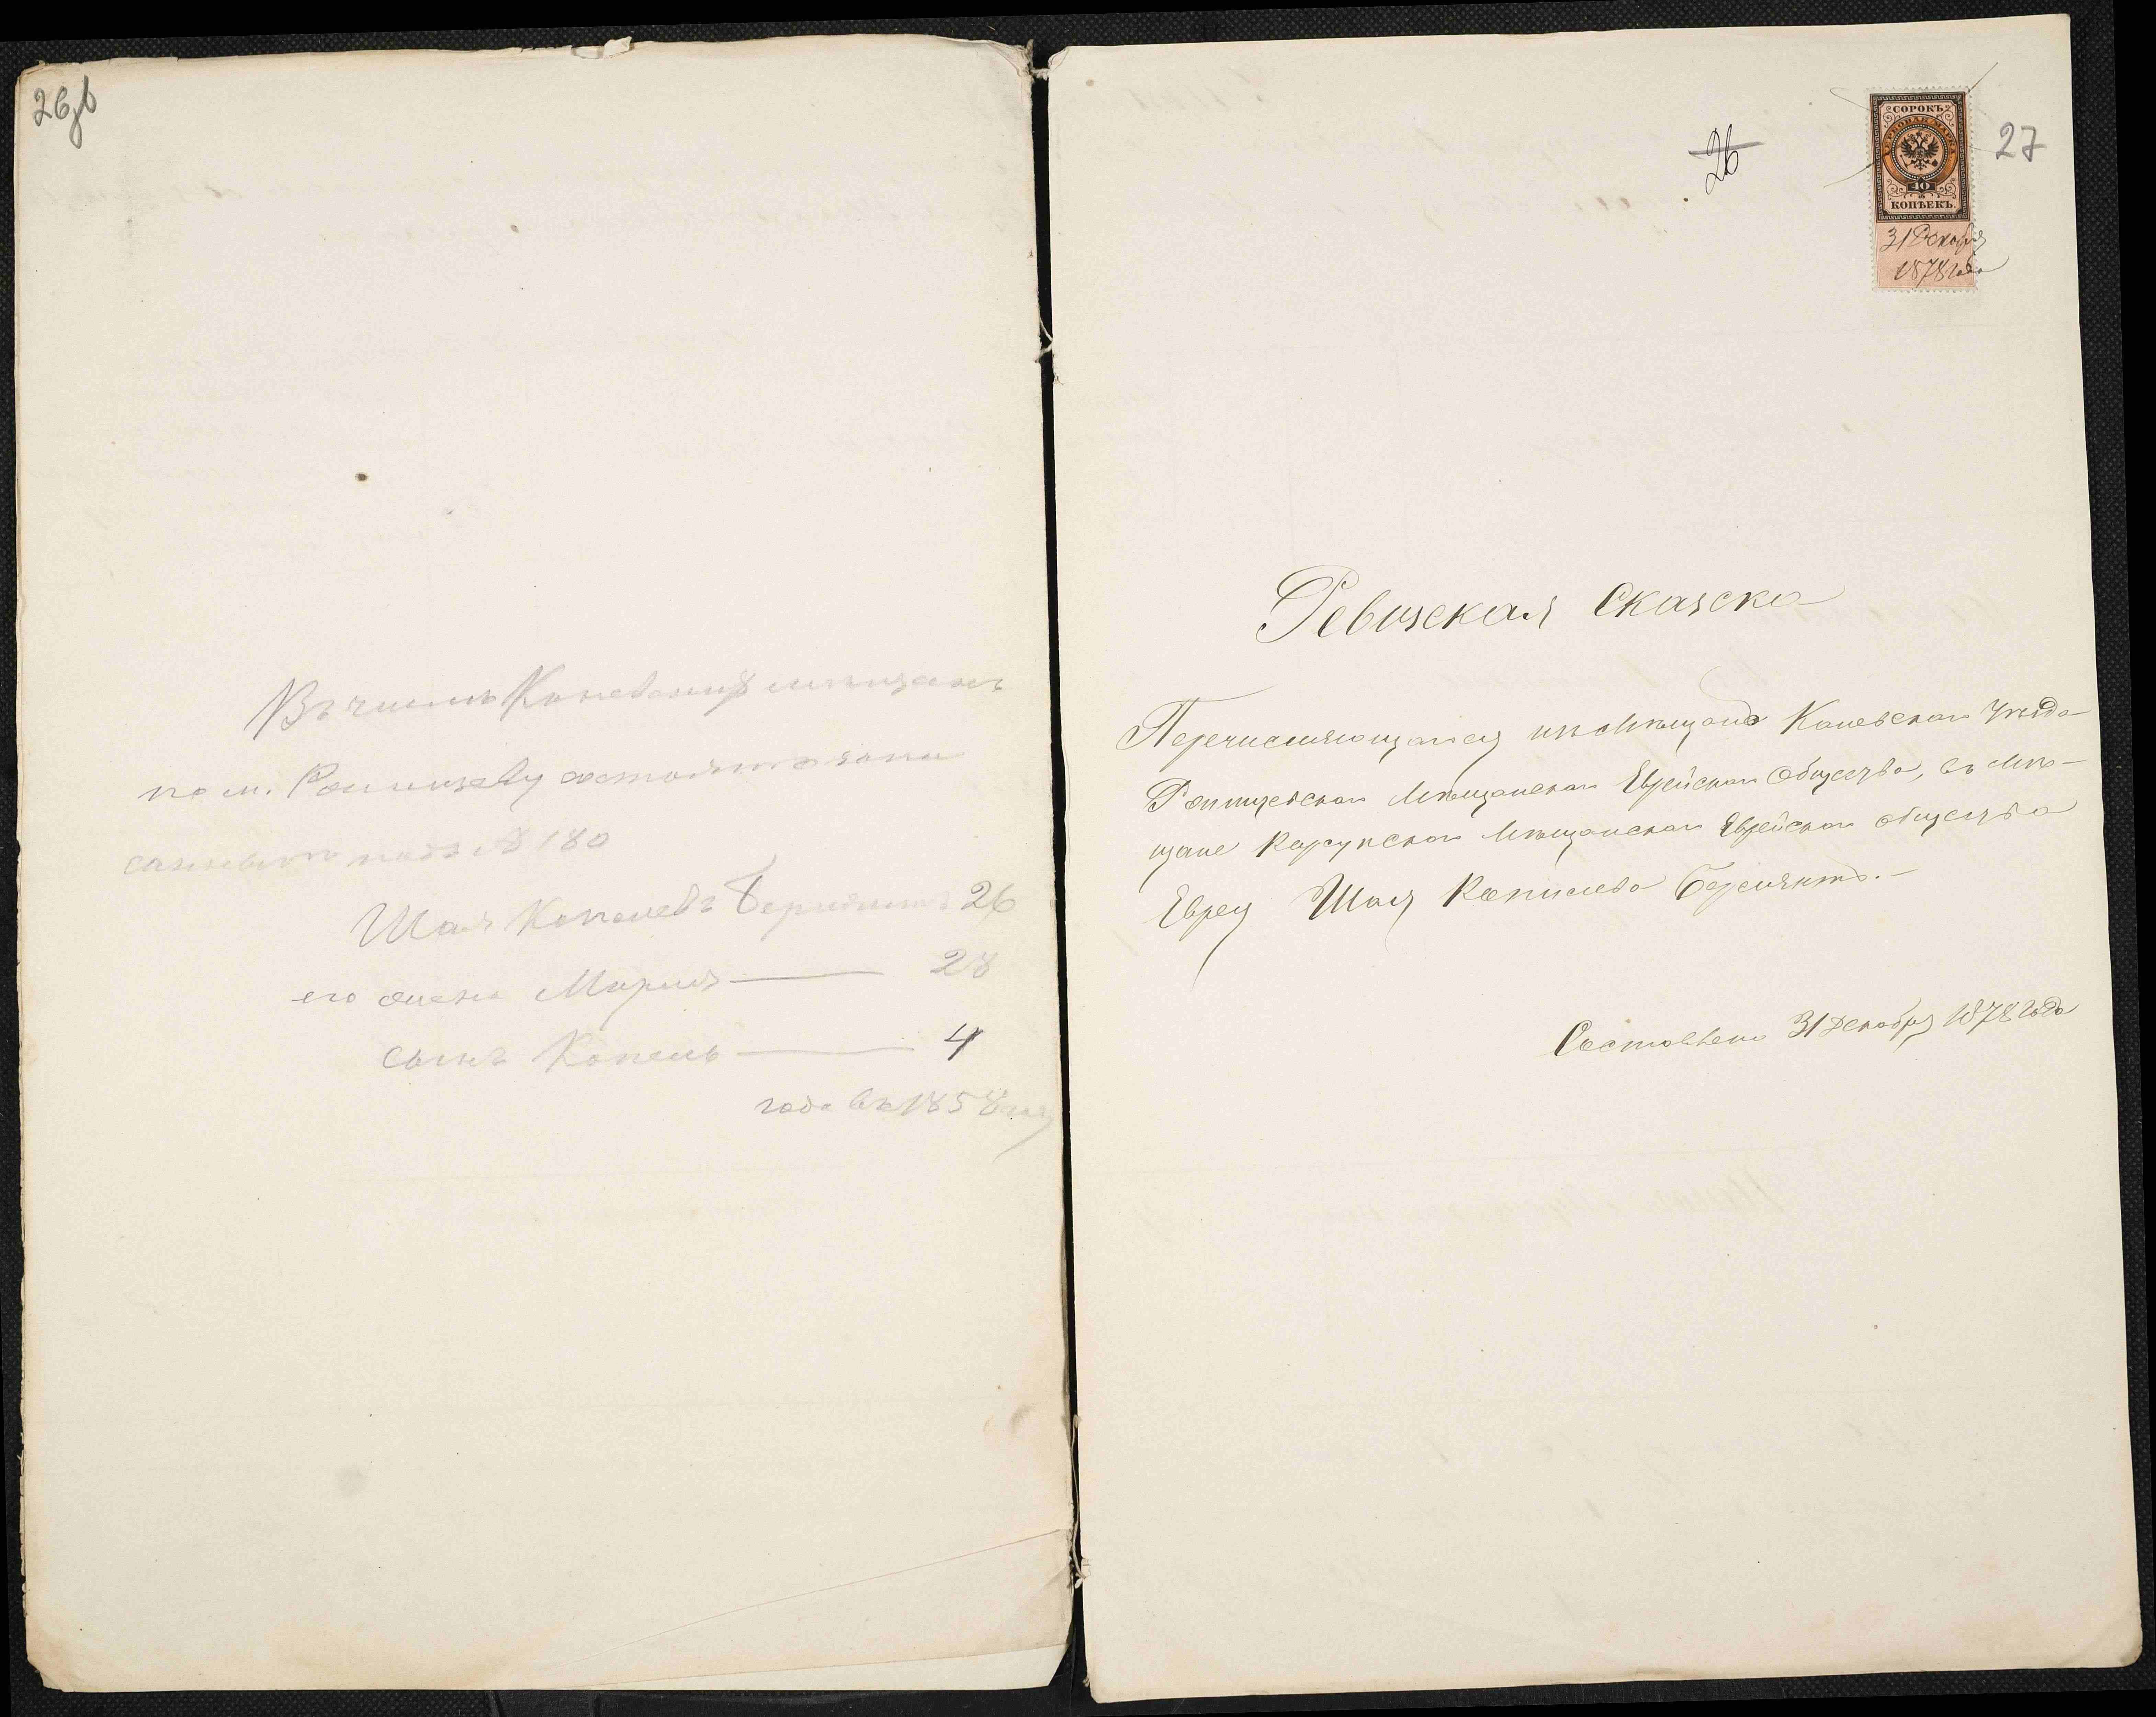 26об
Въ числѣ Каневскихъ мѣщанъ
по м. Ропищеву состоятъ запи
санными подъ № 180
Шая Копелевъ 26
его жена Мария — 28
сынъ Копель — 4
года въ 1858 году
26
27
СОРОКЪ
ГЕРБОВАЯ МАРКА
40
КОПѢЕКЪ.
31 Декабря
1878 года
Ревизская Сказка
Перечисляющагося изъ Мѣщанъ Каневскаго Уѣзда
Мѣщанскаго Еврейскаго Общества, въ Мѣ-
щане Корсунскаго Мѣщанскаго Еврейскаго общества
Еврея Шая Копелева
Составлена 31 Декабря 1878 года